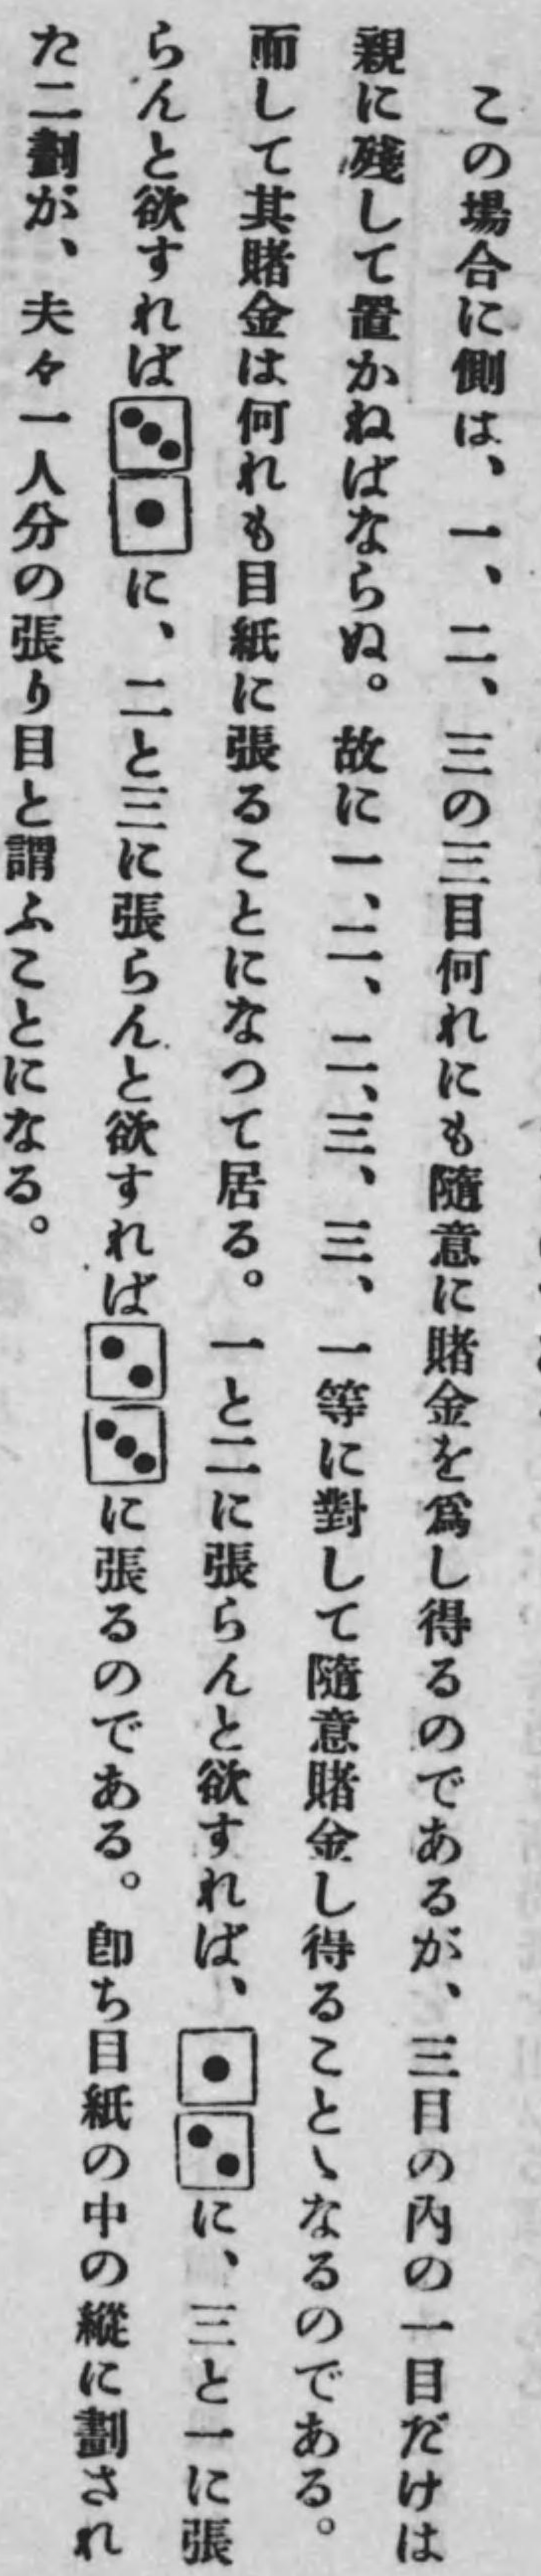 この場合に側は、一、二、三の三目何れにも隨意に賭金を爲し得るのであるが、三目の内の一目だけは
親に殘して置かねばならぬ。故に一、二、二、三、三、一等に對して隨意賭金し得ることゝなるのである。
而して其賭金は何れも目紙に張ることになつて居る。一と二に張らんと欲すれば、⚀⚁に、三と一に張
らんと欲すれば⚂⚀に、二と三に張らんと欲すれば⚁⚂に張るのである。卽ち目紙の中の縱に劃され
た二劃が、夫々一人分の張り目と謂ふことになる。